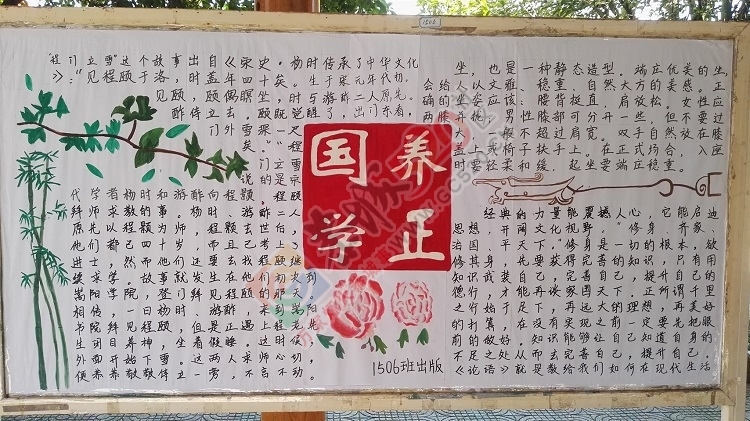 1506
"程门立雪"这个故事出自《宋史·杨时传承了中华文化
》:"见程颐于洛,时盖年四十矣。生于宋元年代初,
见颐,颐偶瞑坐,时与游酢二人原先。
酢侍立去。颐既觉醒了,出门东看,
门外雪深一尺
矣。"程
"门立雪
说的是京
代学者杨时和游酢向程颐程颐人
拜师求教的事。杨时、游酢二人
原先以程颢为师,程颢去世后,
他们都已四十岁,而且已考上
进士,然而他们还要去找程颐继
续求学。故事就发生在他们初次到
嵩阳学院,登门拜见程颐的那天,
相传,一日杨时、游酢,来到嵩阳
书院拜见程颐,但是正遇上程
生闭目养神,坐着假睡。这时候
外面开始下雪。这两人求师心切,
便恭恭敬敬侍立一旁,不言不动。
国学
养正
1506班出版
坐,也是一种静态造型。端庄优美的坐,
会给人以文雅、稳重、自然大方的美感。正
确的坐姿应该:腰背挺直,肩放松。女性应
两膝并拢;男性膝部可分开一些,但不要过
大,一般不超过肩宽。双手自然放在膝
盖上或椅子扶手上。在正式场合,入座
时要轻柔和缓,起坐要端庄稳重。
经典的力量能震撼人心,它能启迪
思想,开阔文化视野,"修身、齐家、
治国、平天下。"修身是一切的根本。欲
修其身,先要获得完善的知识,只有用
知识武装自己,完善自己,提升自己的
德行,才能再谈家国天下,正所谓千里
之行始于足下,再远大的理想,再美好
的打算,在没有实现之前一定要先把眼
前的做好。知识能够让自己知道自身的
不足之处从而去完善自己,提升自己,
《论语》就是教给我们如何在现代生活